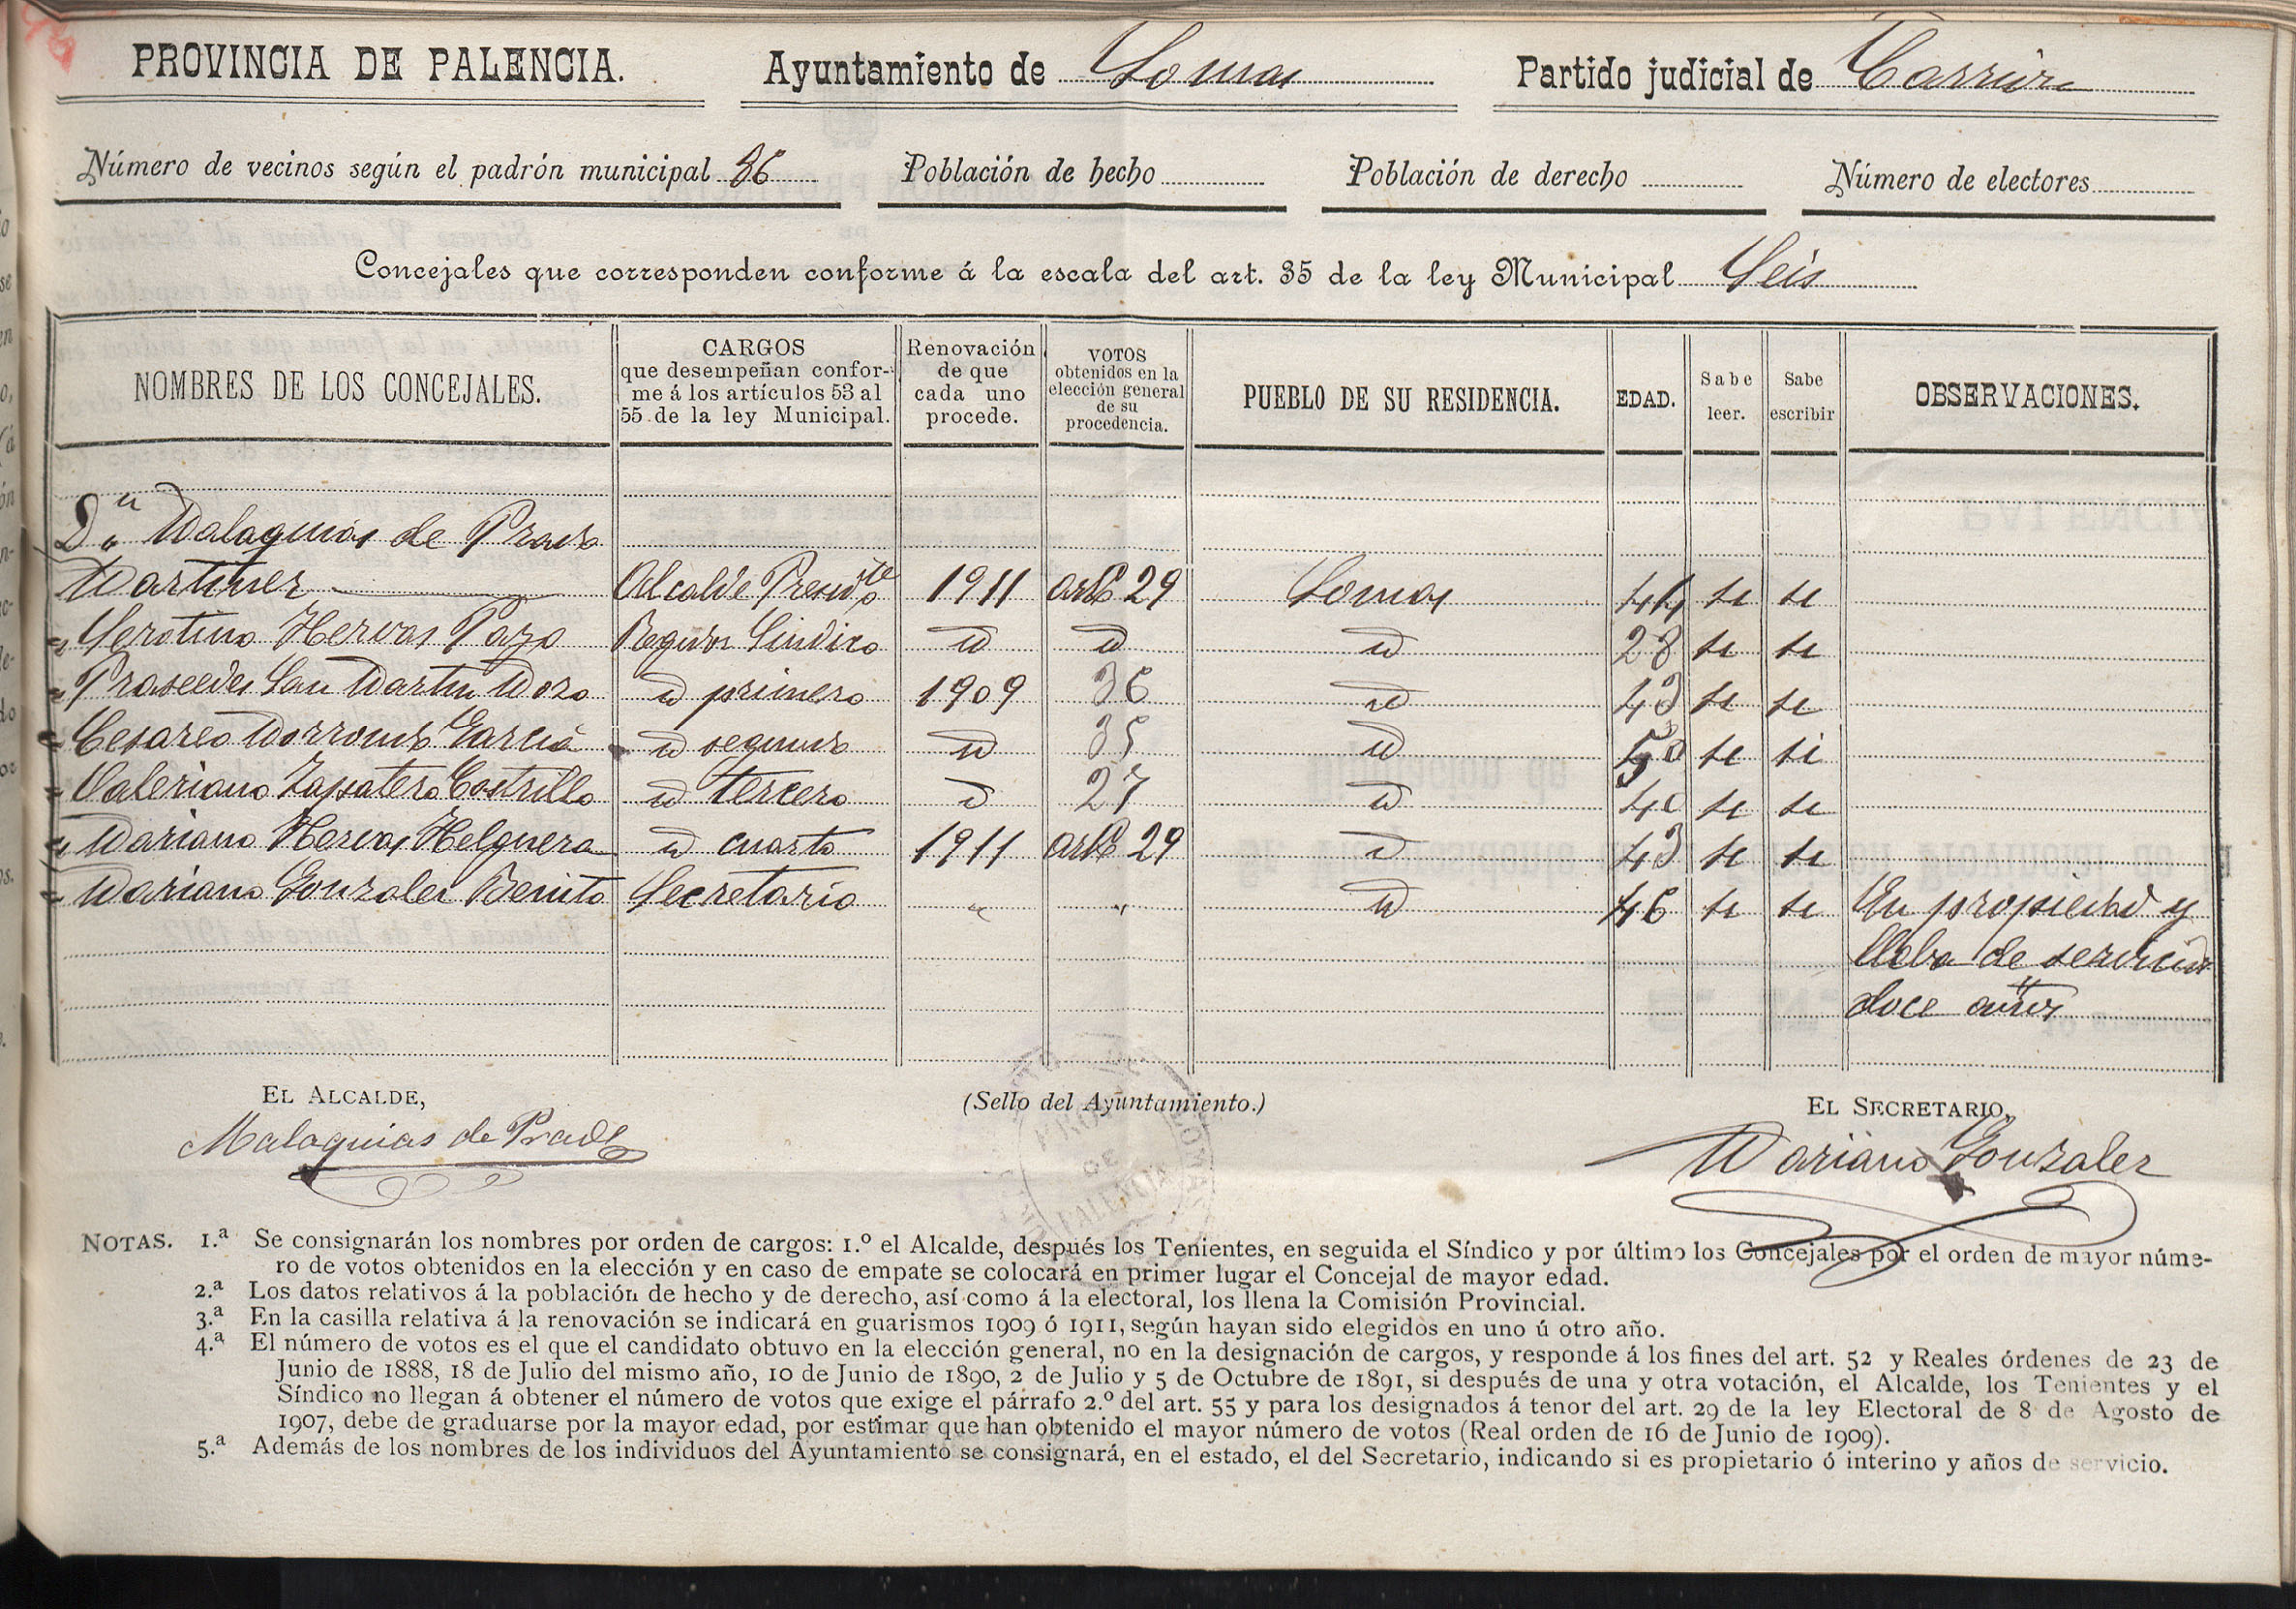 PROVINCIA DE PALENCIA. Ayuntamiento de Lomas Partido judicial de Carrión
Número de vecinos según el padrón municipal 86 Población de hecho Población de derecho Número de electores
Concejales que corresponden conforme á la escala del art. 35 de la ley Municipal Seis
NOMBRES DE LOS CONCEJALES. CARGOS que desempeñan confor-me á los artículos 53 al 55 de la ley Municipal. Renovación de que cada uno procede. VOTOS obtenidos en la elección general de su procedencia. PUEBLO DE SU RESIDENCIA. EDAD. Sabe leer. Sabe escribir OBSERVACIONES.
Dn Malaquias de Prado
Martinez Alcalde Presidte 1911 artº 29 Lomas 44 si si
" Serotino Hervas Pazo Regidor Sindico id id id 28 si si
" Praxedes San Martin Moro id primero 1909 36 id 43 si si
" Cesareo Morrondo Garcia id segundo id 35 id 50 si si
" Valeriano Zapatero Castrillo id tercero id 27 id 40 si si
" Mariano Hervas Helguera id cuarto 1911 artº 29 id 43 si si
" Mariano Gonzalez Benito Secretario " " id 46 si si En propiedad y
lleba de servicios
doce años
EL ALCALDE, (Sello del Ayuntamiento.) EL SECRETARIO,
Malaquias de Prado Mariano Gonzalez
PROV.ª DE PALENCIA
NOTAS. 1.ª Se consignarán los nombres por orden de cargos: 1.º el Alcalde, después los Tenientes, en seguida el Síndico y por último los Concejales por el orden de mayor núme-
ro de votos obtenidos en la elección y en caso de empate se colocará en primer lugar el Concejal de mayor edad.
2.ª Los datos relativos á la población de hecho y de derecho, así como á la electoral, los llena la Comisión Provincial.
3.ª En la casilla relativa á la renovación se indicará en guarismos 1909 ó 1911, según hayan sido elegidos en uno ú otro año.
4.ª El número de votos es el que el candidato obtuvo en la elección general, no en la designación de cargos, y responde á los fines del art. 52 y Reales órdenes de 23 de
Junio de 1888, 18 de Julio del mismo año, 10 de Junio de 1890, 2 de Julio y 5 de Octubre de 1891, si después de una y otra votación, el Alcalde, los Tenientes y el
Síndico no llegan á obtener el número de votos que exige el párrafo 2.º del art. 55 y para los designados á tenor del art. 29 de la ley Electoral de 8 de Agosto de
1907, debe de graduarse por la mayor edad, por estimar que han obtenido el mayor número de votos (Real orden de 16 de Junio de 1909).
5.ª Además de los nombres de los individuos del Ayuntamiento se consignará, en el estado, el del Secretario, indicando si es propietario ó interino y años de servicio.